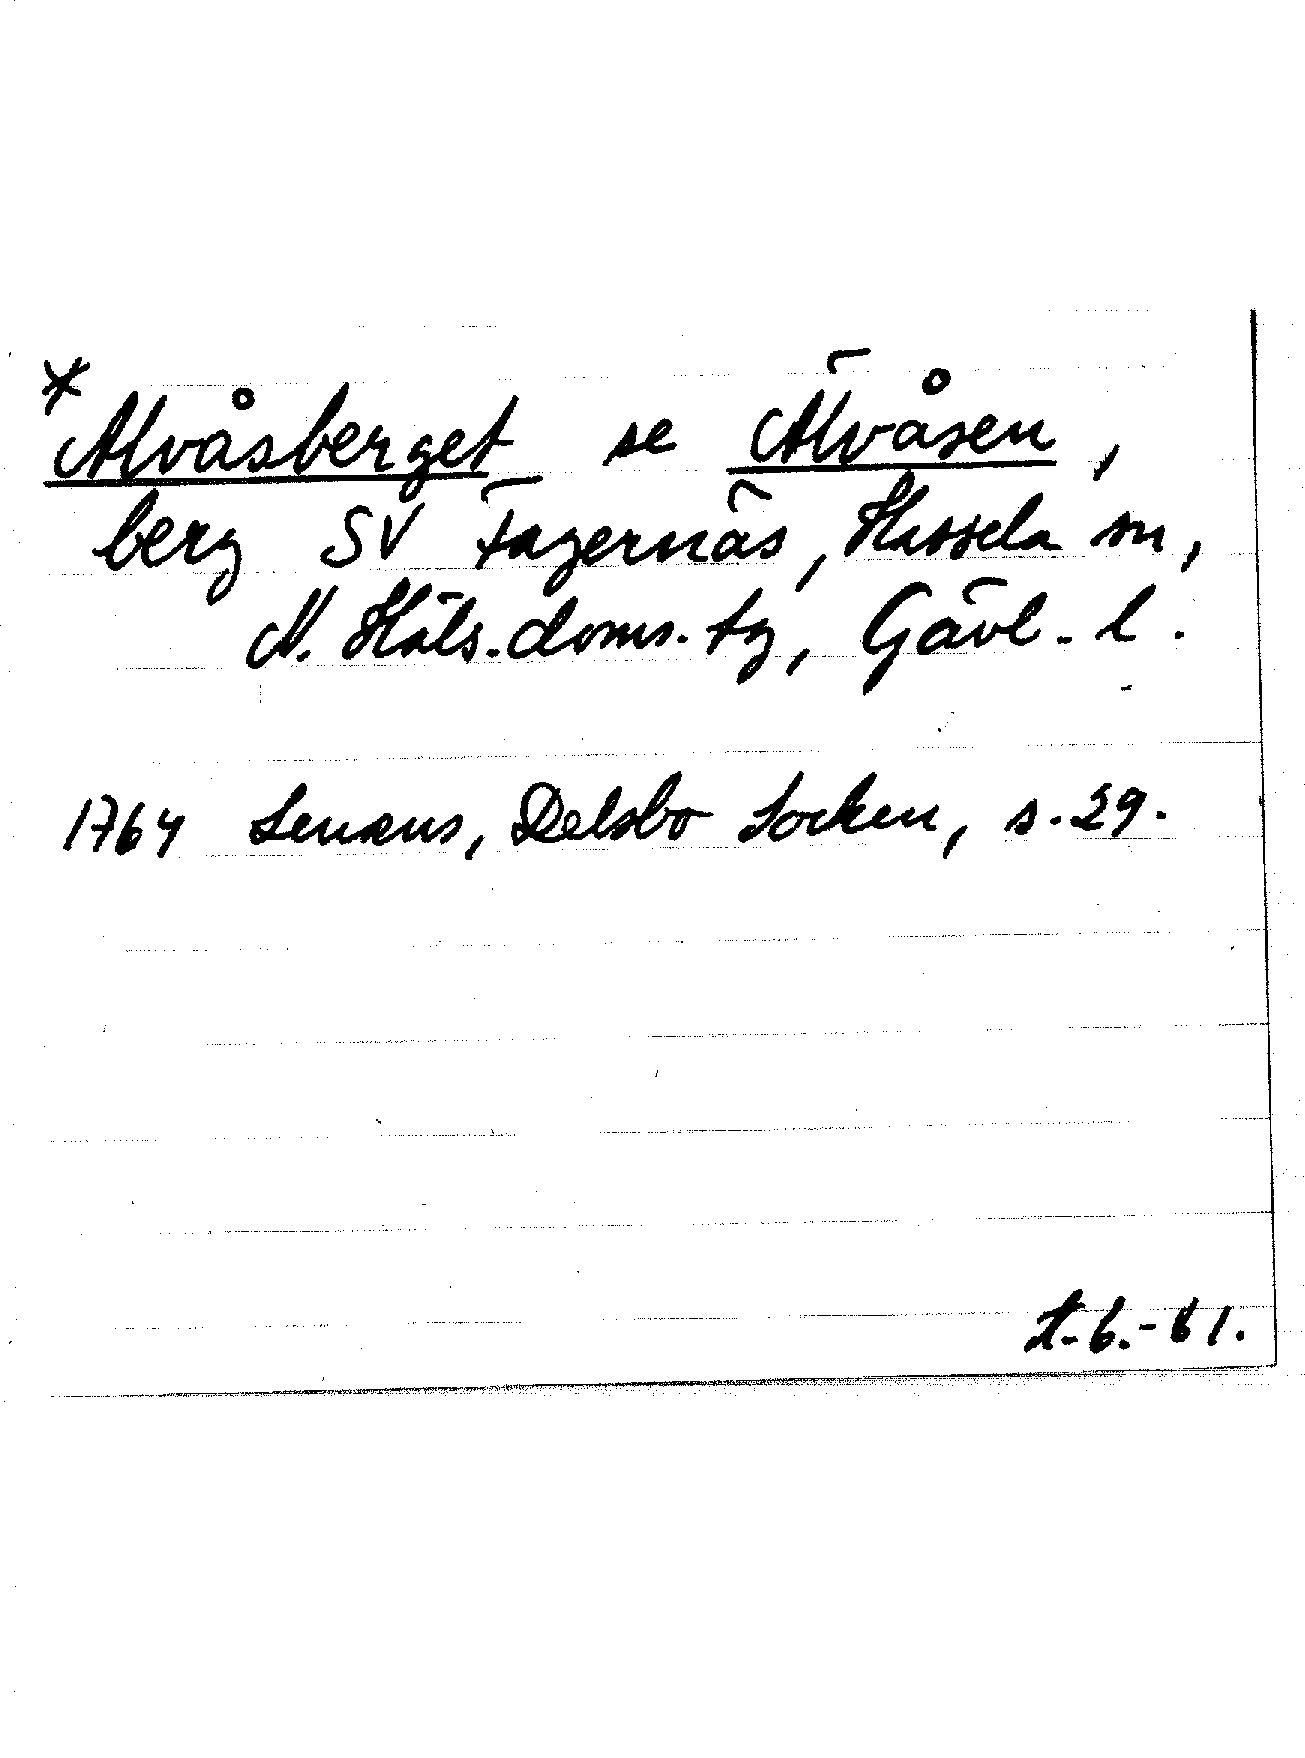 * Alvåsberget se Älvåsen,
berg SV Fagernäs, Hassela sn,
N. Häls. doms. tg, Gävl. l.
1764 Lenæus, Delsbo Socken, s. 29.
t. 6. - 61.